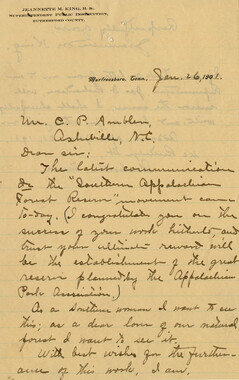 JEANNETTE M. KING, B. S.,
SUPERINTENDENT PUBLIC INSTRUCTION,
RUTHERFORD COUNTY.
Murfreesboro, Tenn. Jan. 26, 1901.
Mr. C. P. Ambler,
Asheville, N.C.
Dear sir:
The latest communication
the "Southern Appalachian
Forest Reserve" movement came
to-day. (I congratulate you on the
success of your work hitherto, and
trust your ultimate reward will
be the establishment of the great
reserve planned by the Appalachian
Park Association.)
As a Southern woman I want to see
this; as a dear lover of our natural
forest I want to see it.
With best wishes for the further-
ance of this work, I am,